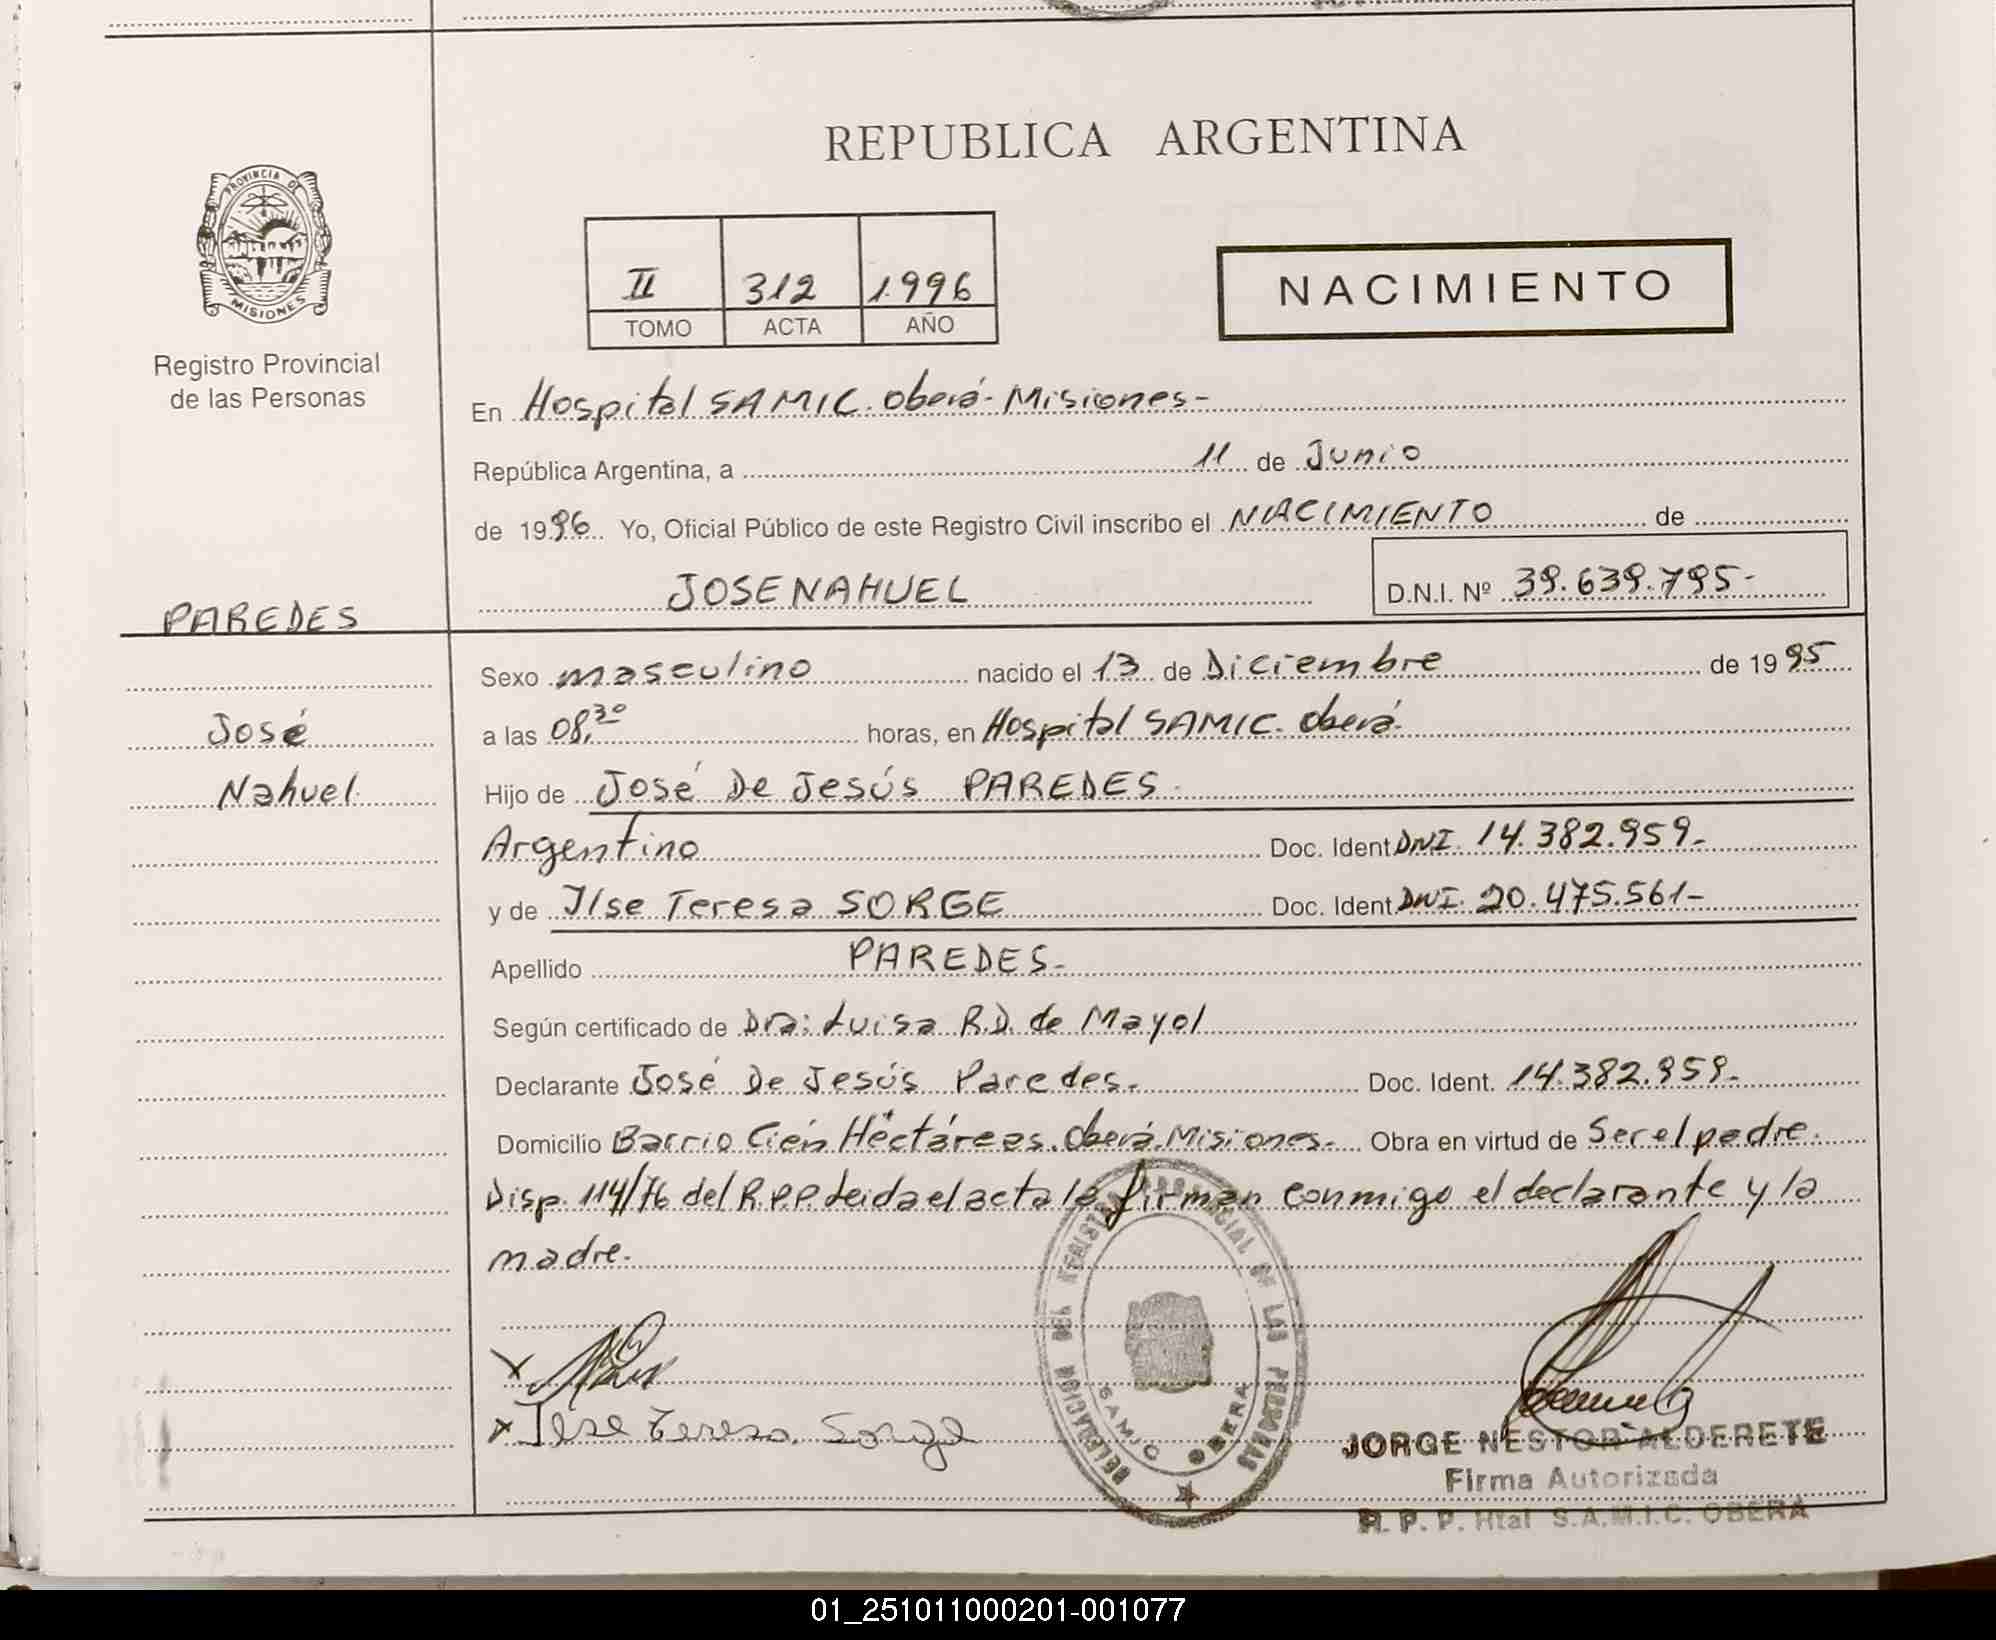 REPUBLICA ARGENTINA
PROVINCIA DE
MISIONES
Registro Provincial
de las Personas
II 312 1996
TOMO ACTA AÑO
NACIMIENTO
En Hospital SAMIC. Oberá- Misiones-
República Argentina, a 11 de Junio
de 1996 Yo, Oficial Público de este Registro Civil inscribo el NACIMIENTO de
JOSE NAHUEL D.N.I. Nº 39.639.795-
PAREDES
José
Nahuel
Sexo masculino nacido el 13 de Diciembre de 1995
a las 08,30 horas, en Hospital SAMIC. Oberá-
Hijo de José De Jesús PAREDES
Argentino Doc. Ident DNI. 14.382.959-
y de Ilse Teresa SORGE Doc. Ident DNI. 20.475.561-
Apellido PAREDES-
Según certificado de Dra: Luisa R.D. de Mayol
Declarante José De Jesús Paredes. Doc. Ident. 14.382.959-
Domicilio Barrio Cien Héctáreas. Oberá. Misiones- Obra en virtud de Ser el padre.
Disp. 114/76 del R.P.P. Leida el acta la firman conmigo el declarante y la
madre.
x
x Ilse Teresa Sorge
DELEGACION DEL REGISTRO PROVINCIAL DE LAS PERSONAS
SAMIC OBERA
JORGE NESTOR ALDERETE
Firma Autorizada
R. P. P. Htal S.A.M.I.C. OBERA
01_251011000201-001077